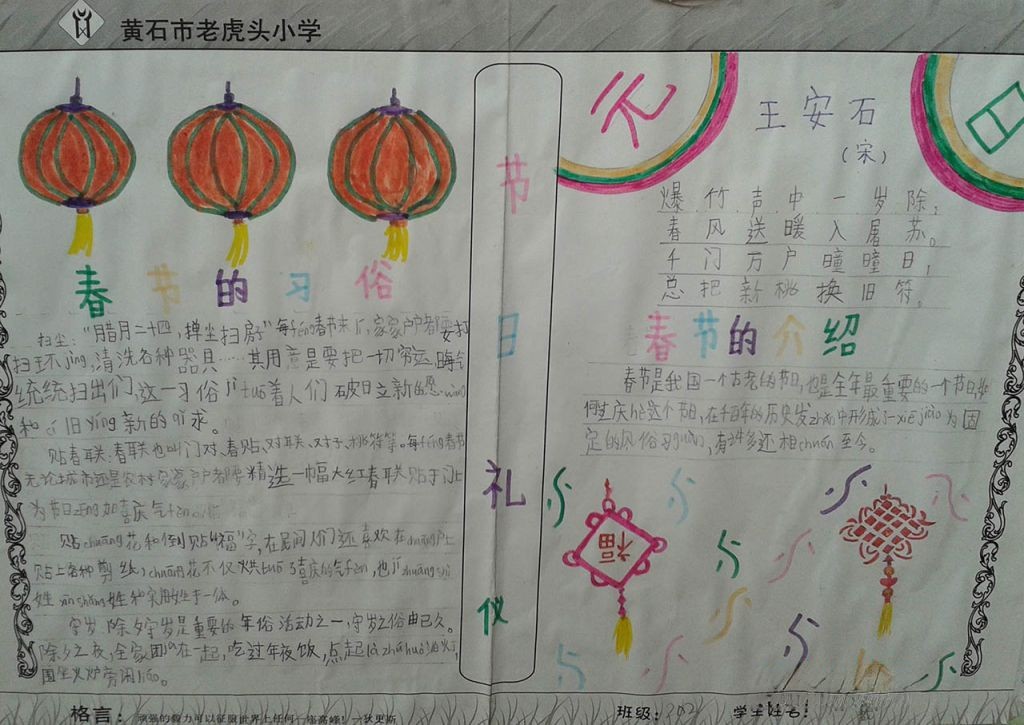 黄石市老虎头小学
春节的习俗
扫尘:“腊月二十四,掸尘扫房” 每féng春节来
扫环jìng,清洗各种器具……其用意是要把一切穷运、晦气
统统扫出门,这一习俗jì tuō着人们破旧立新的愿wàng
和 旧yíng新的qí求。
贴春联:春联也叫门对、春贴、对联、对子、桃符等。每féng春节
无论城市还是农村家家户户都要精选一幅大红春联贴于门上
为节日zēng加喜庆气
贴chuāng花和倒贴“福”字,在民间人们还喜欢在chuāng户上
贴上各种剪纸,chuāng花不仅烘tuō了喜庆的节气fēn,也jí zhuāng shì
姓xīn shǎng姓和实用姓于一体。
守岁:除夕守岁是重要的年俗活动之一,守岁之俗由已久。
除夕之夜,全家团 在一起,吃过年夜饭,点起là zhú huò油灯,
围坐火炉旁闲liáo。
节
日
礼
仪
元
旦
王安石
(宋)
爆竹声中一岁除,
春风送暖入屠苏。
千门万户曈曈日,
总把新桃换旧符。
春节的介绍
春节是我国一个古老的节日,也是全年最重要的一个节日,如
何 庆hè这个节日,在千百年的历史发zhǎn中形成了一xiē jiào为固
定的风俗习guàn,有许多还相chuán至今。
福
格言:顽强的毅力可以征服世界上任何一座高峰!—狄更斯
班级:302
学生姓名: